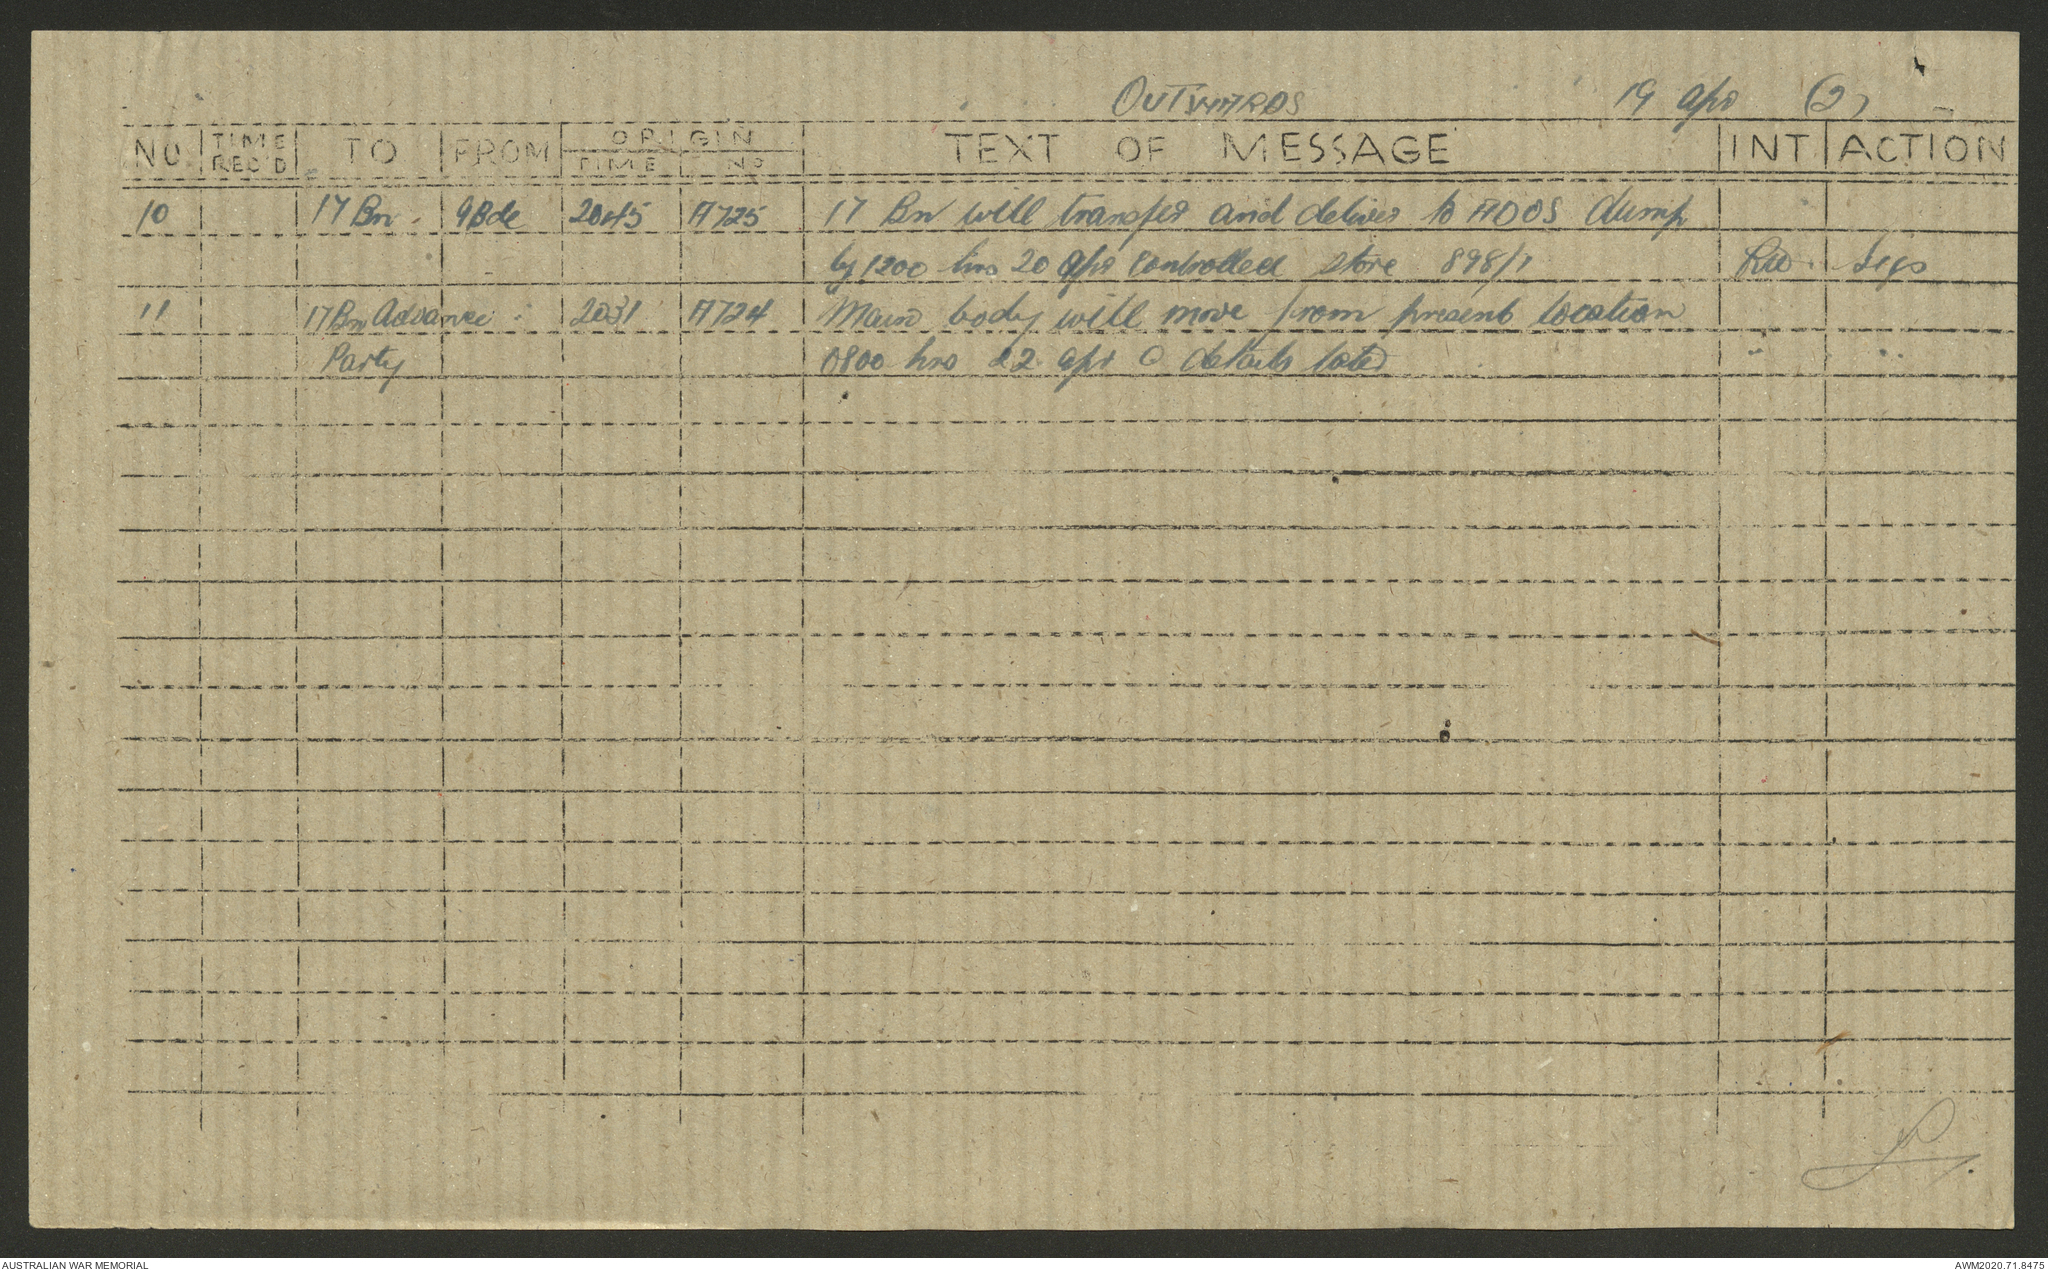 OUTWARDS 19 Apr (2)
NO TIME REC'D TO FROM ORIGIN TIME NO TEXT OF MESSAGE INT ACTION
10 17 Bn. 9 Bde 2045 A725 17 Bn will transfer and deliver to ADOS dump
by 1200 hrs 20 Apr controlled store 898/1 Sigs
11 17 Bn Advance 2031 A724 Main body will move from present location
Party 0800 hrs 22 Apr O details later " "
AUSTRALIAN WAR MEMORIAL AWM2020.71.8475